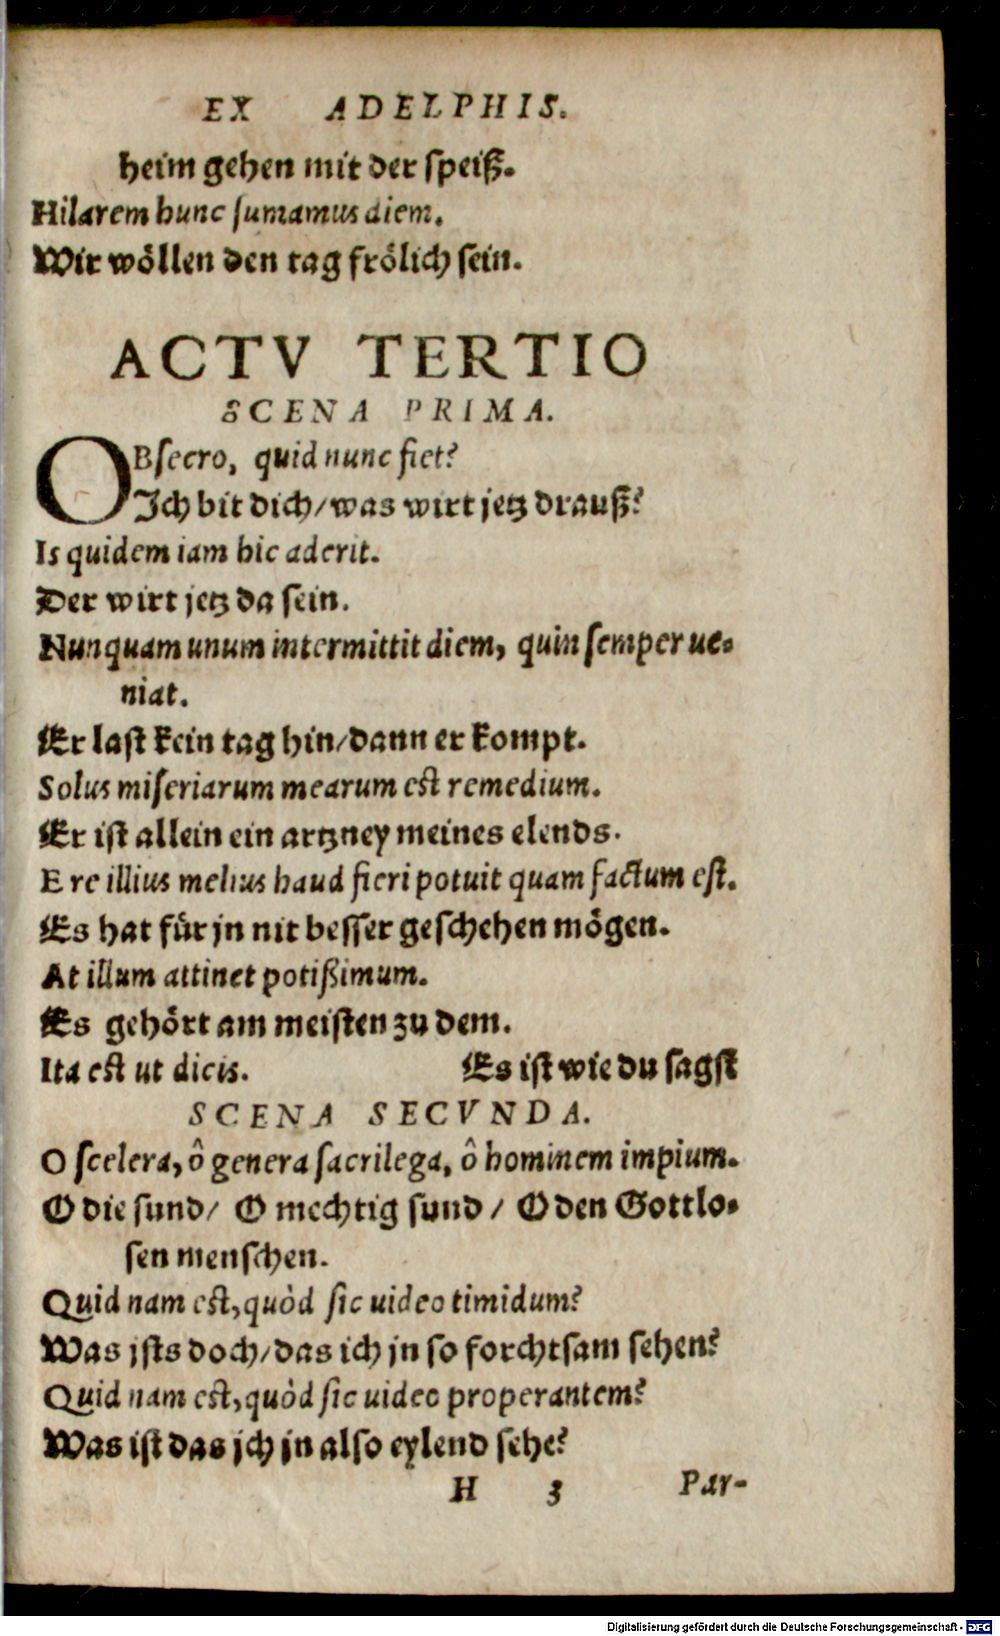 EX ADELPHIS.
heim gehen mit der speiß.
Hilarem hunc ſumamus diem.
Wir wöllen den tag frölich sein.
ACTV TERTIO
SCENA PRIMA.
OBſecro, quid nunc fiet?
Ich bit dich/was wirt jetz drauß?
Is quidem iam hic aderit.
Der wirt jetz da sein.
Nunquam unum intermittit diem, quin ſemper ue-
niat.
Er laſt kein tag hin/dann er kompt.
Solus miſeriarum mearum eſt remedium.
Er iſt allein ein artzney meines elends.
E re illius melius haud fieri potuit quam factum eſt.
Es hat für jn nit beſſer geſchehen mögen.
At illum attinet potißimum.
Es gehört am meiſten zu dem.
Ita eſt ut dicis. Es iſt wie du sagſt
SCENA SECVNDA.
O ſcelera, ô genera ſacrilega, ô hominem impium.
O die sund/ O mechtig sund / O den Gottlo-
sen menschen.
Quid nam eſt, quòd ſic uideo timidum?
Was jſts doch/das ich jn so forchtsam sehen?
Quid nam eſt, quòd ſic uideo properantem?
Was iſt das jch jn also eylend sehe?
H 3 Par-
Digitalisierung gefördert durch die Deutsche Forschungsgemeinschaft - DFG